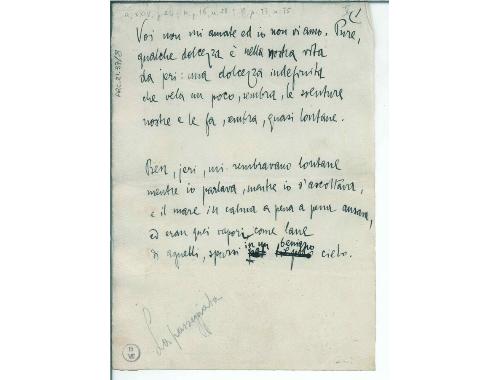 Voi non mi amate ed io non vi amo. Pure,
qualche dolcezza è nella nostra vita
da jeri: una dolcezza indefinita
che vela un poco, sembra, le sventure
nostre e le fa, sembra, quasi lontane.
Ben, jeri, mi sembravano lontane
mentre io parlava, mentre io v'ascoltava,
e il mare in calma a pena a pena ansava,
ed eran quei vapori come lane
di agnelli, sparsi in un benigno cielo.
La passeggiata